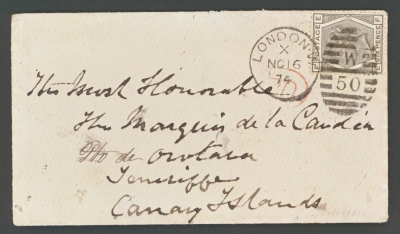 LONDON·W
X
NO 16
74
E POSTAGE F
SIX PENCE
W
50
The Most Honorable
The Marquis de la Candia
Pto de Orotava
Teneriffe
Canary Islands